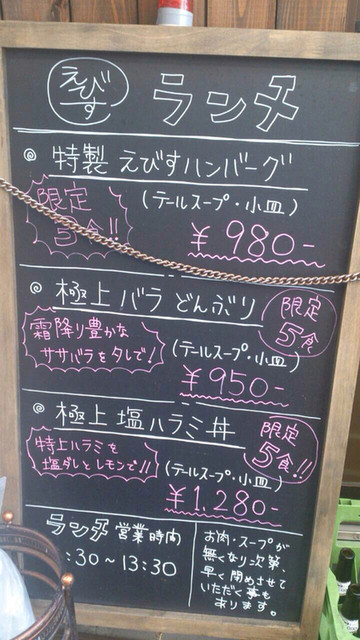 えびす ランチ
◎ 特製 えびすハンバーグ
限定
食!!
(テールスープ・小皿)
¥980-
◎ 極上 バラ どんぶり
限定
5食
霜降り豊かな
ササバラをタレで!
(テールスープ・小皿)
¥950-
◎ 極上 塩ハラミ丼
限定
5食!!
特上ハラミを
塩ダレとレモンで!!
(テールスープ・小皿)
¥1,280-
ランチ 営業時間
:30〜13:30
お肉・スープが
無くなり次第、
早く閉めさせて
いただく事も
あります。